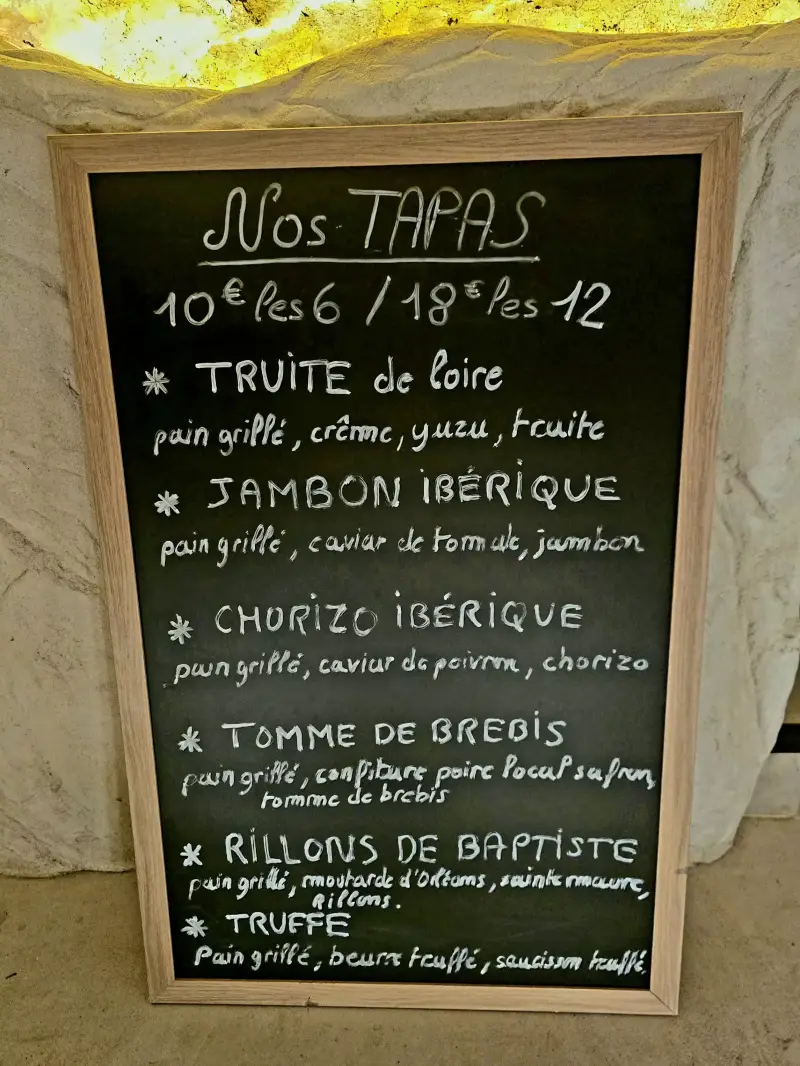 Nos TAPAS
10€ les 6 / 18€ les 12
* TRUITE de loire
pain grillé, crême, yuzu, truite
* JAMBON IBÉRIQUE
pain grillé, caviar de tomate, jambon
* CHORIZO IBÉRIQUE
pain grillé, caviar de poivron, chorizo
* TOMME DE BREBIS
pain grillé, confiture poire local safran,
tomme de brebis
* RILLONS DE BAPTISTE
pain grillé, moutarde d'Orléans, sainte maure,
rillons.
* TRUFFE
Pain grillé, beurre truffé, saucisson truffé.